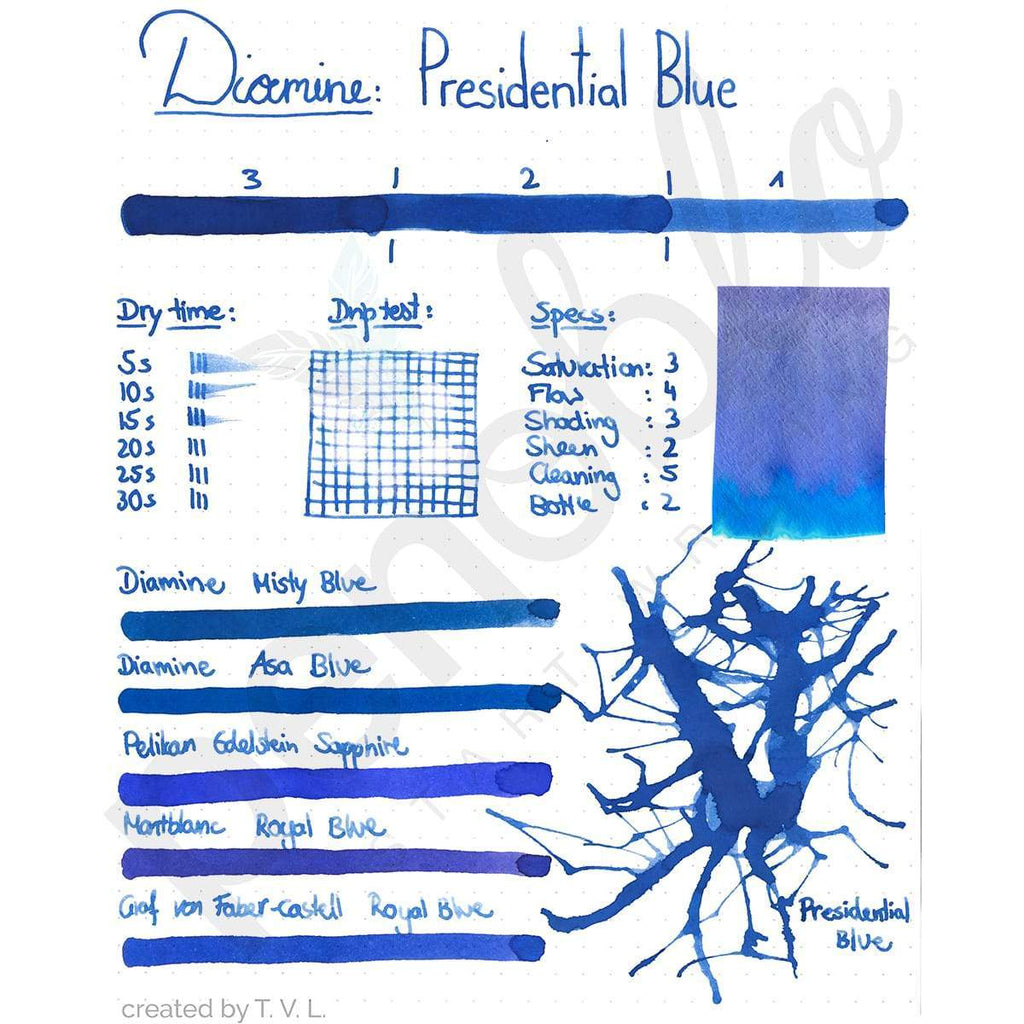 Diamine: Presidential Blue
3 2 1
Dry time:
5s
10s
15s
20s
25s
30s
Drip test:
Specs:
Saturation: 3
Flow : 4
Shading : 3
Sheen : 2
Cleaning : 5
Bottle : 2
Diamine Misty Blue
Diamine Asa Blue
Pelikan Edelstein Sapphire
Montblanc Royal Blue
Graf von Faber-Castell Royal Blue
Presidential
Blue
Penoblo
START WRITING
created by T. V. L.